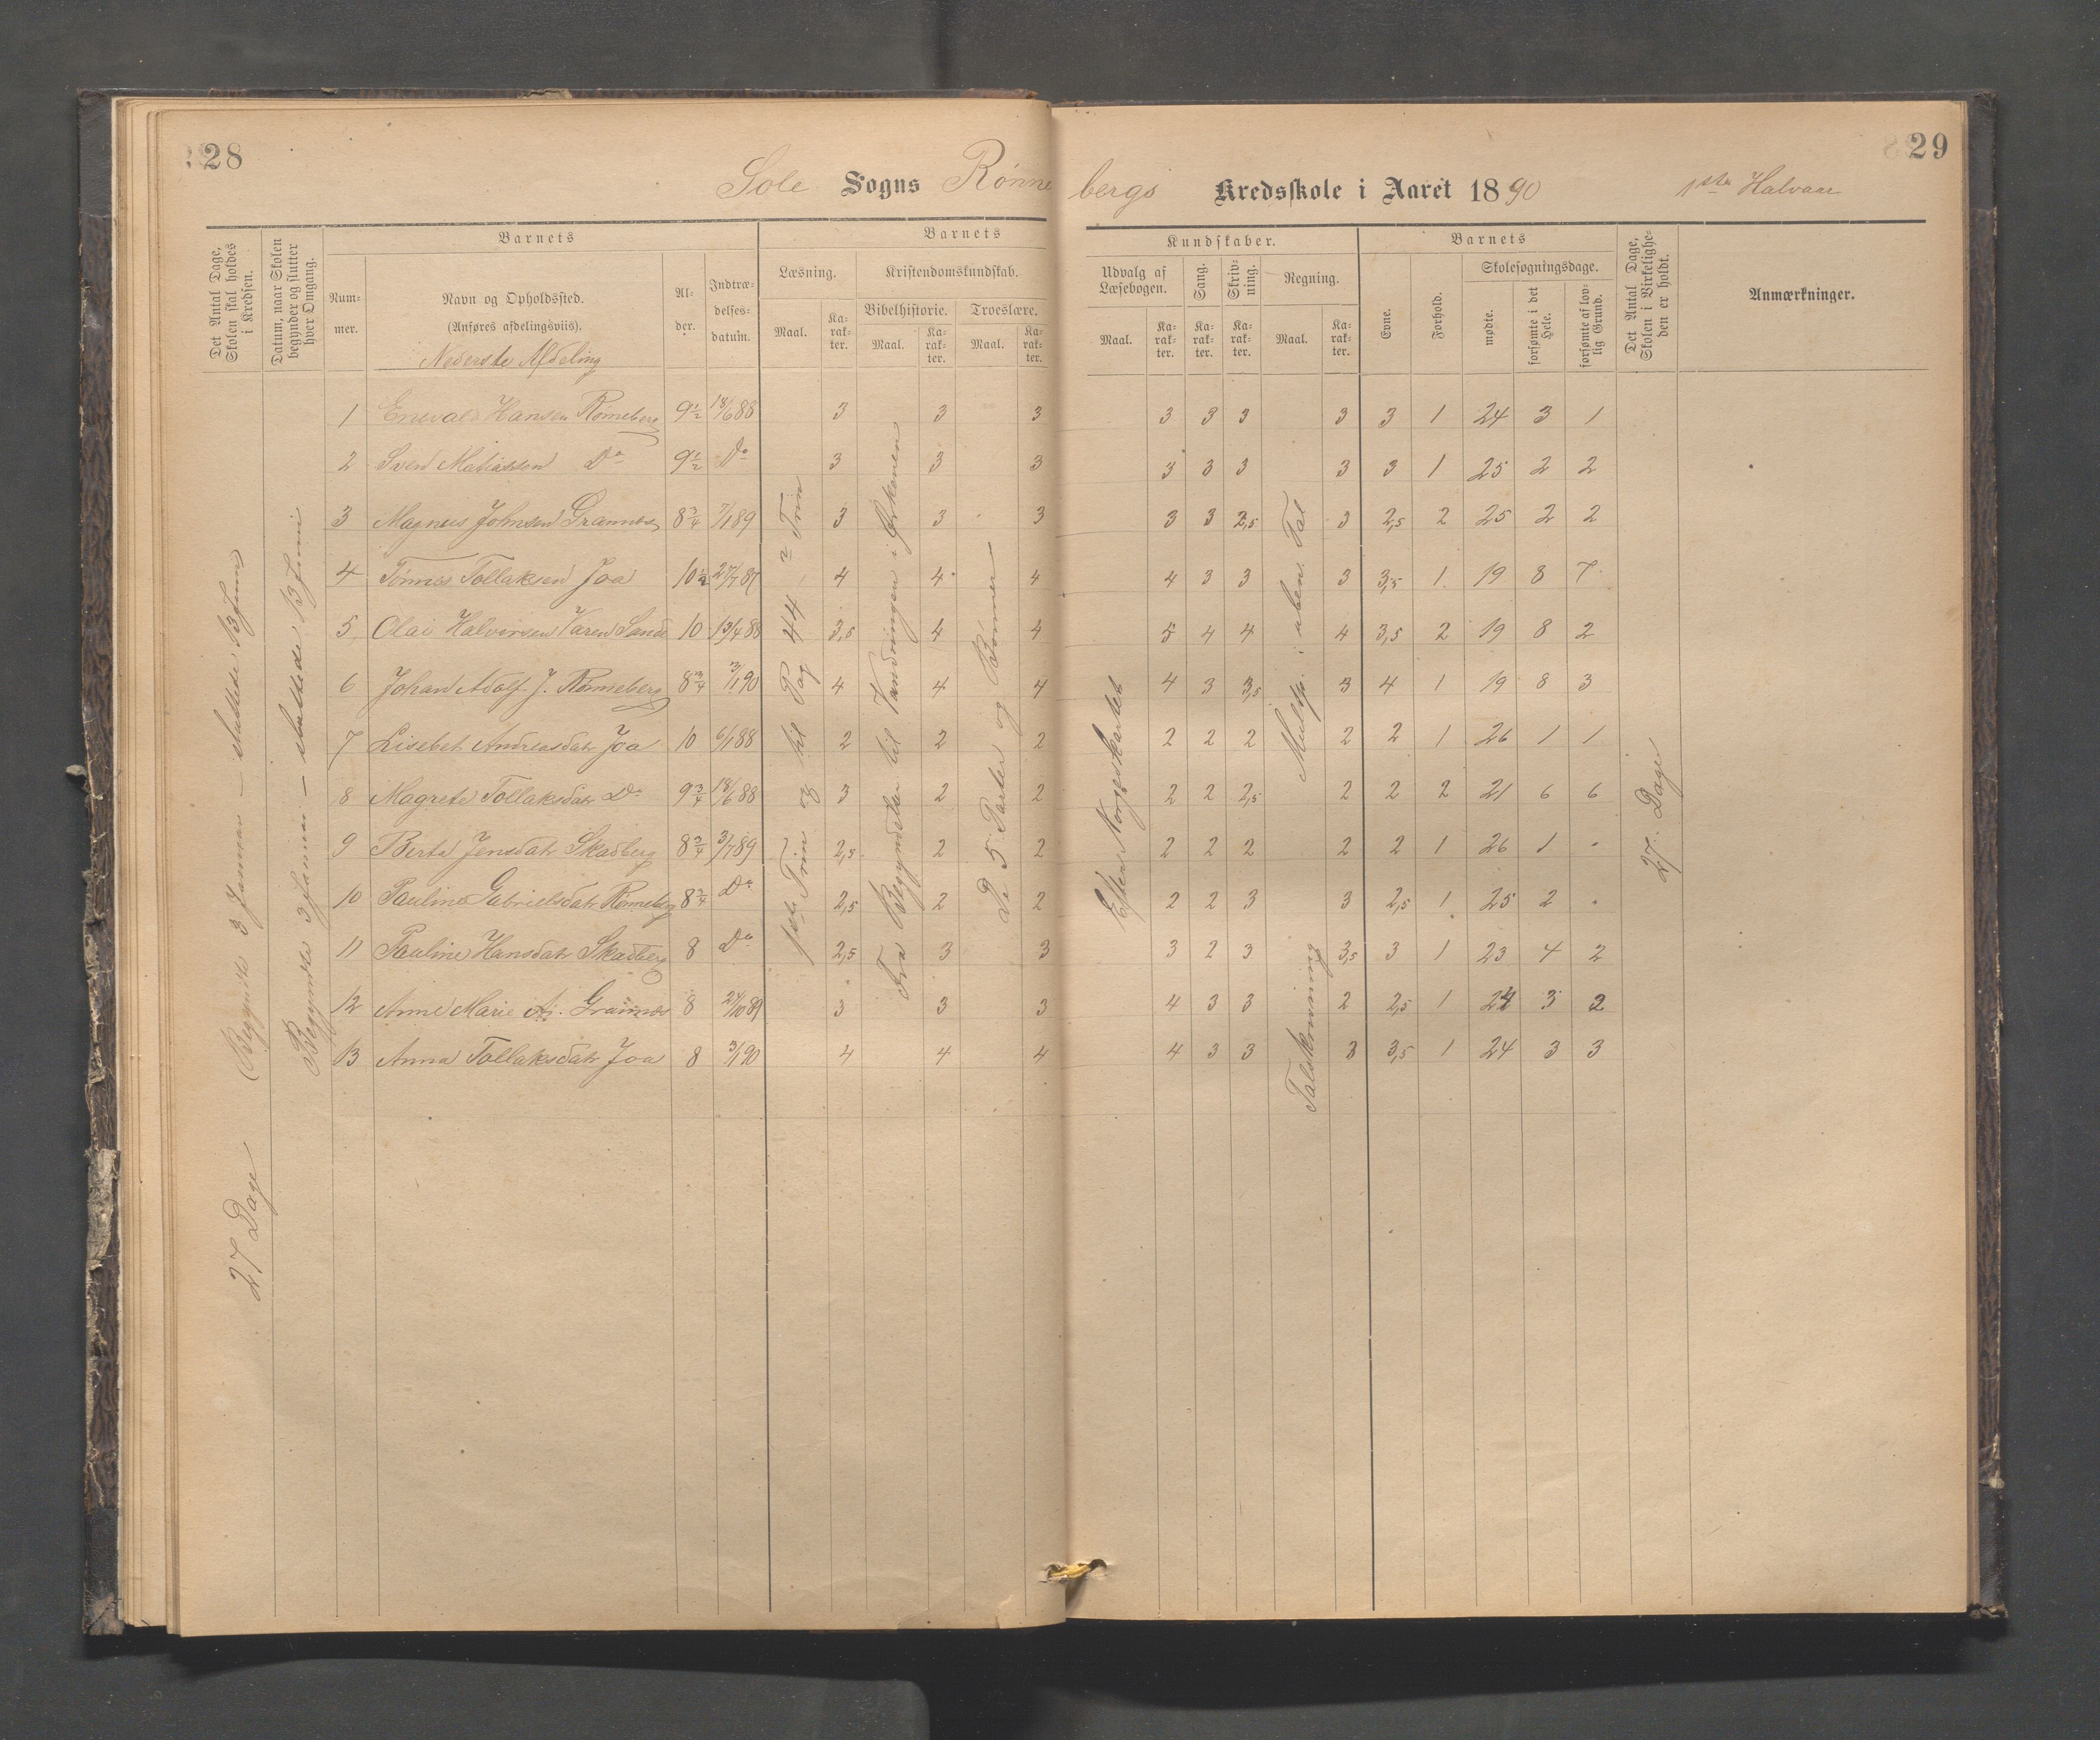 28
29
Sole Sogns Rønnebergs Kredsskole i Aaret 1890 1ste Halvaar
Det Antal Dage, Skolen skal holdes i Kredsen.
Datum, naar Skolen begynder og slutter hver Omgang.
Barnets
Nummer.
Navn og Opholdssted.
(Anføres afdelingsviis).
Nederste Afdeling
Alder.
Indtrædelsesdatum.
Barnets
Læsning.
Maal.
Karakter.
Kristendomskundskab.
Bibelhistorie.
Maal.
Karakter.
Troeslære.
Maal.
Karakter.
Kundskaber.
Udvalg af Læsebogen.
Maal.
Karakter.
Sang.
Karakter.
Skrivning.
Karakter.
Regning.
Maal.
Karakter.
Barnets
Evne.
Forhold.
Skolesøgningsdage.
mødte.
forsømte i det Hele.
forsømte af lovlig Grund.
Det Antal Dage, Skolen i Virkeligheden er holdt.
Anmærkninger.
1 Enevald Hansen Rønneberg 9½ 18/6 88 3 3 3 3 3 3 3 3 1 24 3 1
2 Sven Matiassen Do 9½ Do 3 3 3 3 3 3 3 3 1 25 2 2
3 Magnus Johnsen Grannes 8¾ 7/1 89 3 3 3 3 3 2,5 3 2,5 2 25 2 2
4 Tønnes Tollaksen Joa 10½ 27/7 87 4 4 4 4 3 3 3 3,5 1 19 8 7
5 Olai Halvorsen Karen Sande 10 13/4 88 3,5 4 4 5 4 4 4 3,5 2 19 8 2
6 Johan Adolf J. Rønneberg 8¾ 3/1 90 4 4 4 4 3 3,5 3 4 1 19 8 3
7 Lisebet Andreasdatr Joa 10 6/1 88 2 2 2 2 2 2 2 2 1 26 1 1
8 Magrete Tollaksdatr Do 9¾ 18/6 88 3 2 2 2 2 2,5 2 2 2 21 6 6
9 Berta Jensdatr Skadberg 8¾ 3/7 89 2,5 2 2 2 2 2 2 2 1 26 1 "
10 Pauline Gabrielsdatr Rønneberg 8¾ Do 2,5 2 2 2 2 3 3 2,5 1 25 2 "
11 Pauline Hansdatr Skadberg 8 Do 2,5 3 3 3 2 3 3,5 3 1 23 4 2
12 Anne Marie A. Grannes 8 24/10 89 3 3 3 4 3 3 2 2,5 1 24 3 2
13 Anna Tollaksdatr Joa 8 3/1 90 4 4 4 4 3 3 3 3,5 1 24 3 3
27 Dage (Begyndte 3 Januar — sluttede 13 Juni
Begyndte 3 Januar — sluttede 13 Juni
1ste Trin og til Pag 44 i 2 Trin
Fra Begyndelsen til Vandringen i Ørkenen
De 5 Parter og Bønner
Efter Norgeskartet
Talskrivning
Multip. i uben. Tal
27. Dage